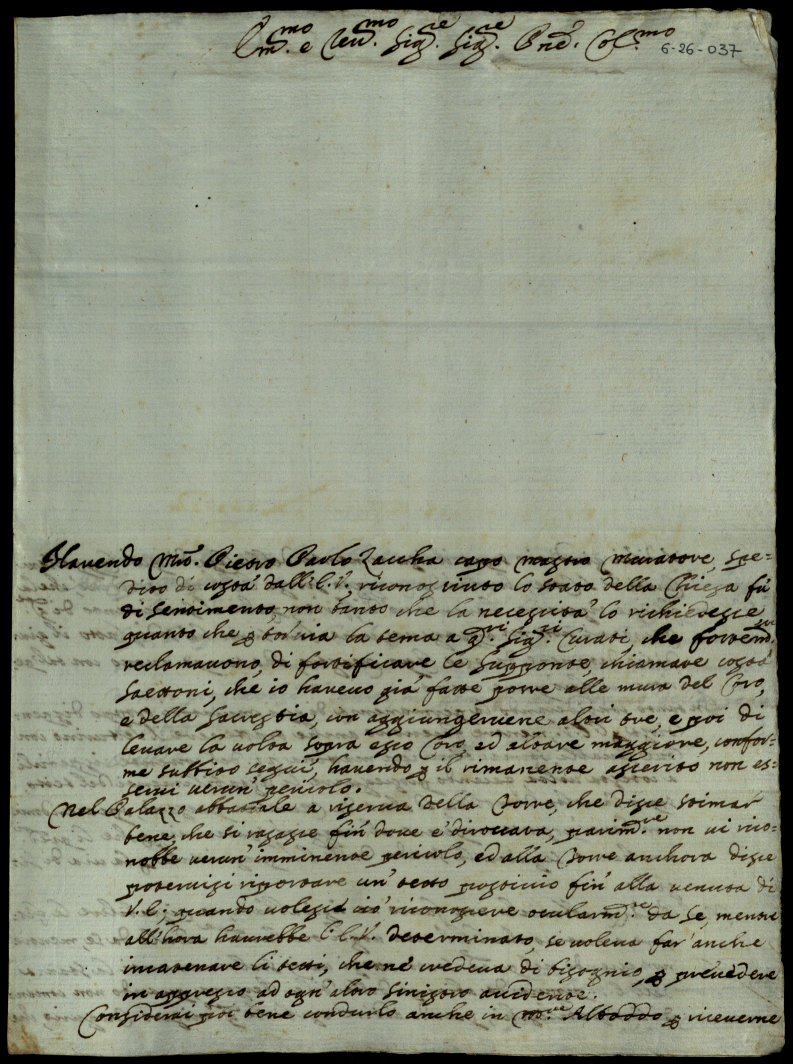 Ill.mo e Reu.mo Sig.re Sig.re Pne. Col.mo
6-26-037
Hauendo Mro. Pietro Paolo Zaccha capo mastro muratore, spe=
dito di costà dall'E.V. riconosciuto lo stato della Chiesa fù
di sentimento non tanto che la necessità lo richiedesse
quanto che p tor uia la tema a q.sti Sig.ri Curati, che fortem.te
reclamauono, di fortificare le supponte, chiamate costà
saettoni, che io haueuo già fatte porre alle mura del Coro,
e della Sacrestia, con aggiungeruene altri tre, e poi di
leuare la uolta sopra esso Coro, ed altare maggiore, confor=
me subbito seguì, hauendo p il rimanente asserito non es=
serui uerun' pericolo.
Nel Palazzo abbatiale a riserua della Torre, che disse stimar
bene, che si rasasse fin' doue è dirottata, parim.te non ui rico=
nobbe uerun' imminente pericolo, ed alla Torre anchora disse
poteruisi riportare un' tetto posticcio fin' alla uenuta di
V.E; quando uolesse ciò riconoscere ocularm.te da se, mentre
all'hora haurebbe l'E.V. determinato, se uoleua far' anche
incatenare li tetti, che nè uedeua di bisognio, p preuedere
in appresso ad ogn' altro sinistro accidente.
Considerai poi bene condurlo anche in m.te Altoddo p riceuerne